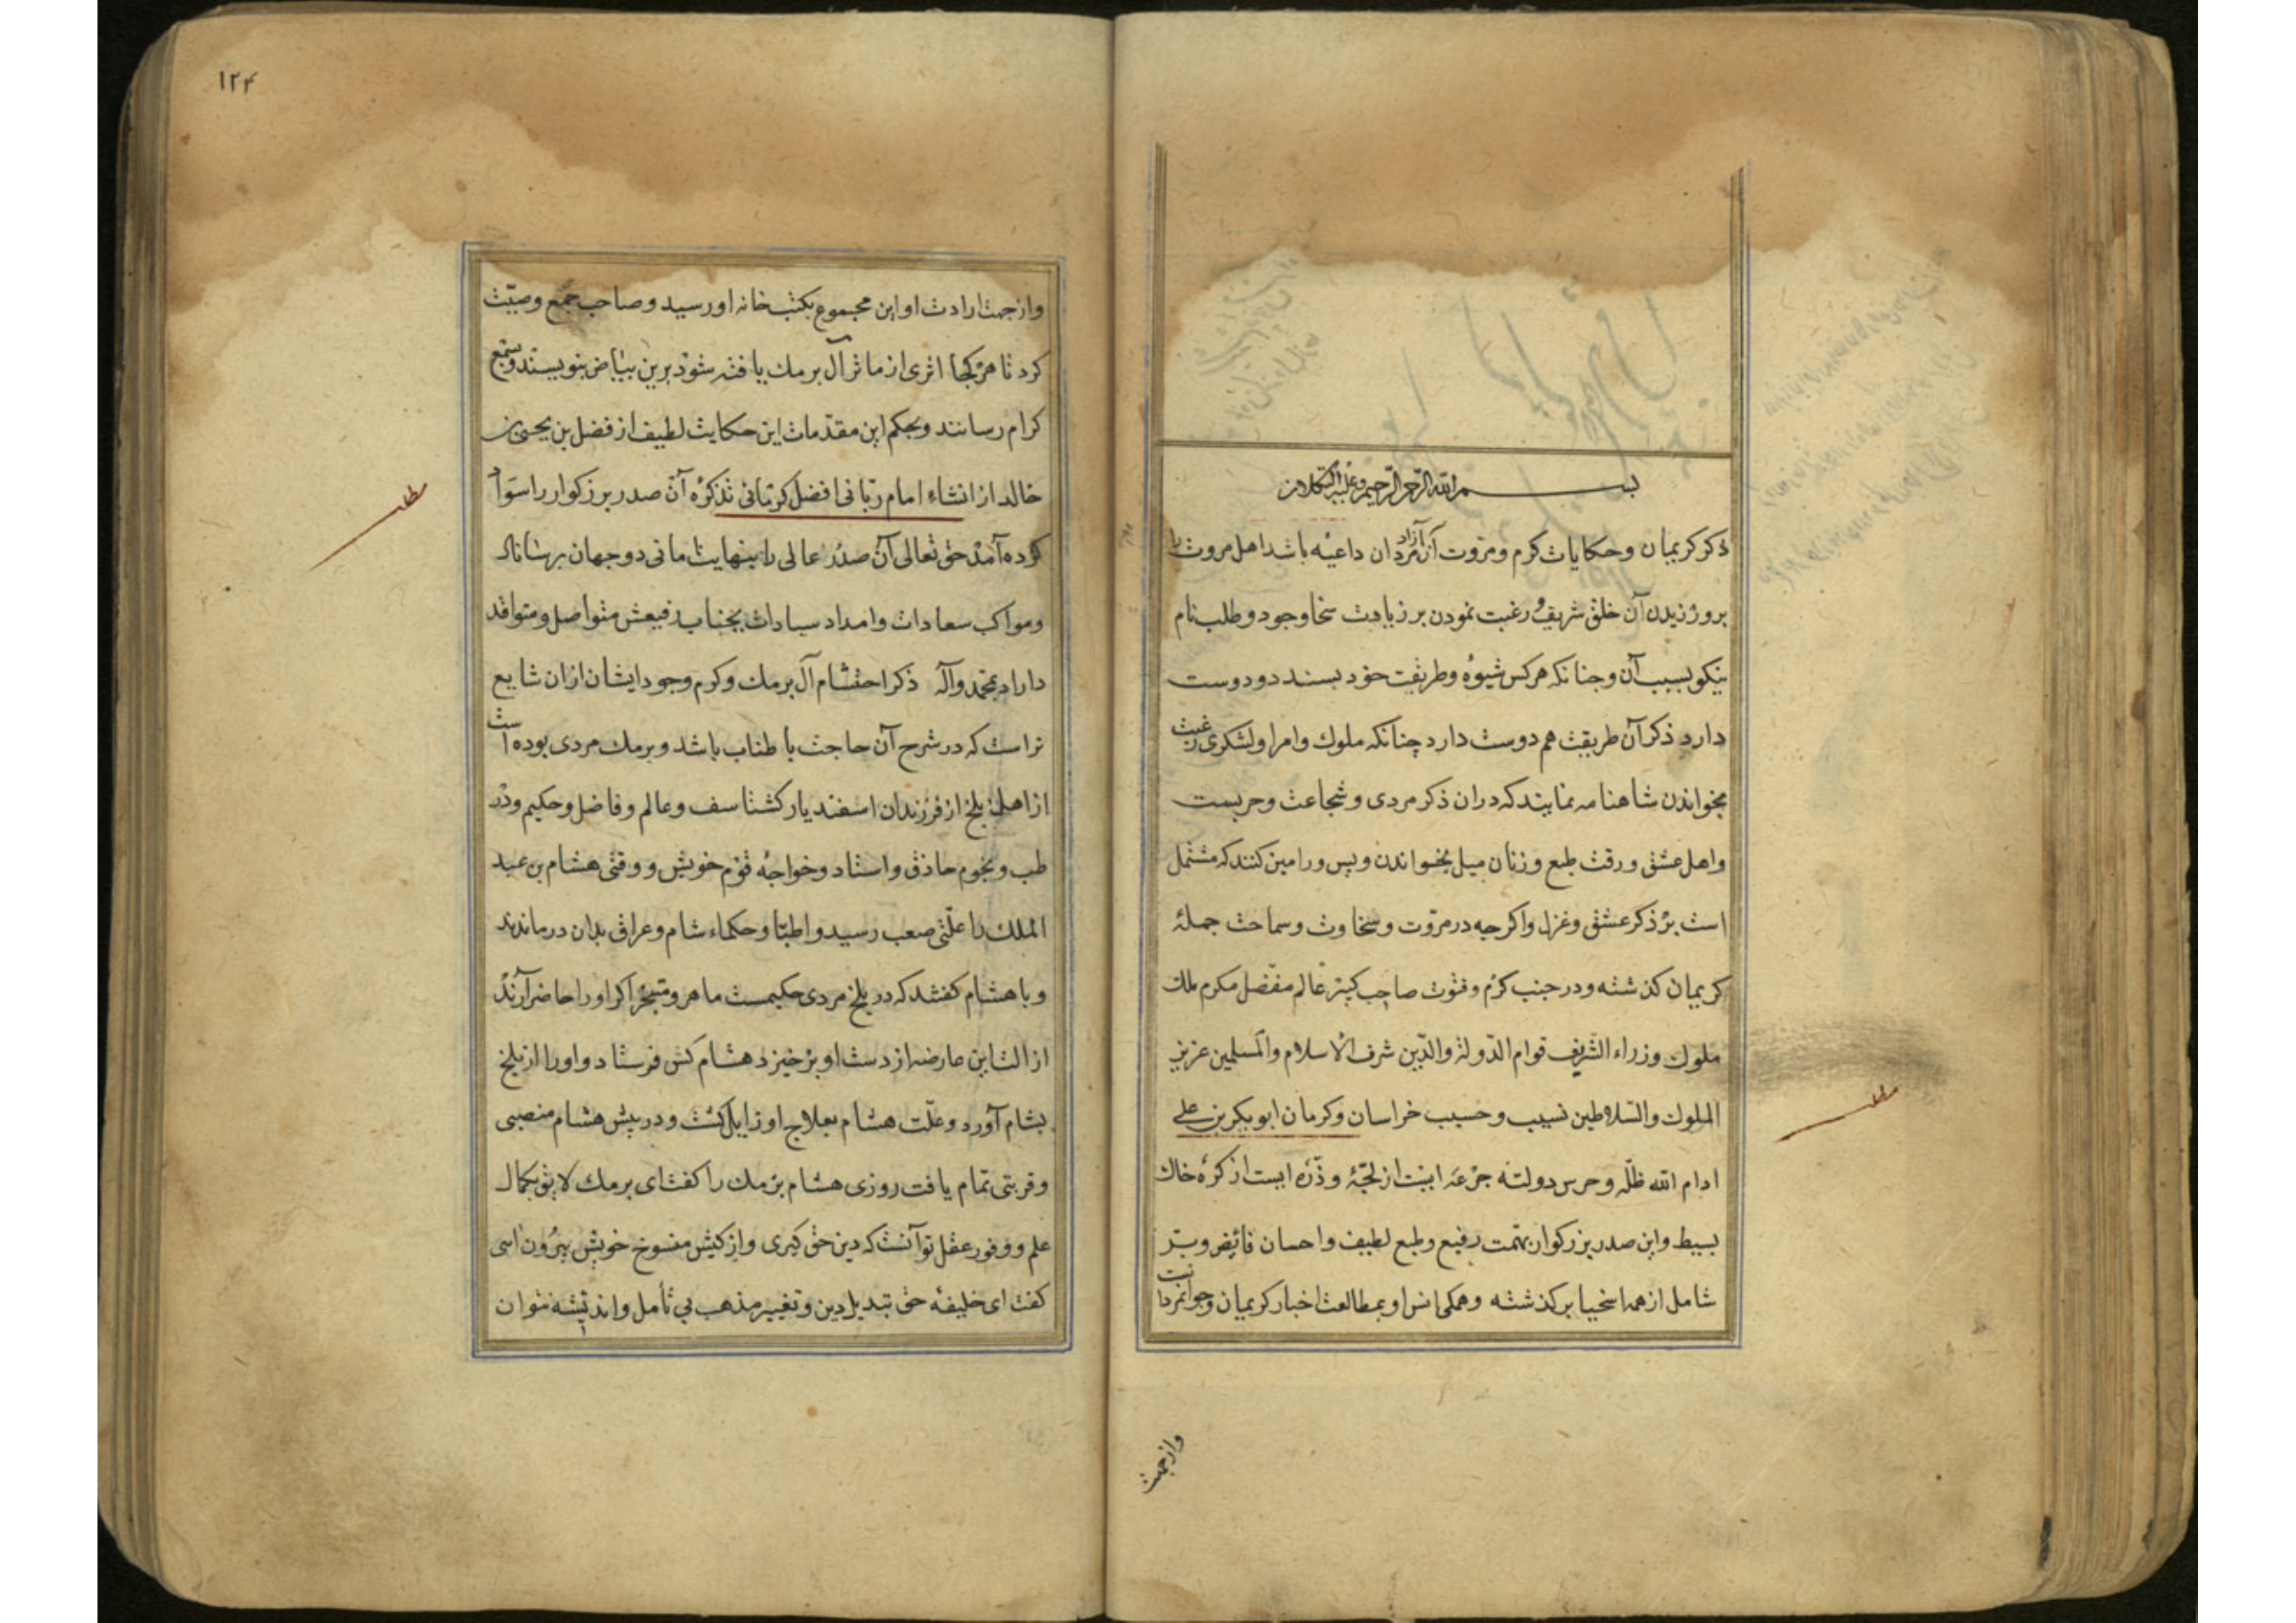 بسم الله الرحمن الرحیم وعلیه التکلان
ذکر کریمان وحکایات کرم ومروت آن آزاد مردان داعیه باشد اهل مروت را
بروزیدن آن خلق شریف ورغبت نمودن بر زیادت سخا وجود وطلب نام
نیکو بسبب آن وجنانکه هرکس شیوه وطریقت خود بسندد ودوست
دارد ذکر آن طریقت هم دوست دارد چنانکه ملوک وامرا ولشکری رغبت
بخواندن شاهنامه نمایند که دران ذکر مردی وشجاعت وحربست
واهل عشق ورقت طبع وزنان میل بخواندن ویس ورامین کنند که مشتمل
است بر ذکر عشق وغزل واکرجه در مروت وسخاوت وسماحت جملهٔ
کریمان کذشته ودر جنب کرم وفتوت صاحب کبیر عالم مفضل مکرم ملک
ملوک وزراء الشریف قوام الدولة والدین شرف الاسلام والمسلمین عزیز
الملوک والسلاطین نسیب وحسیب خراسان وکرمان ابوبکر بن علی
ادام الله ظله وحرس دولته جرعه ایست از لجهٔ وذره ایست از کرهٔ خاک
بسیط واین صدر بزرکوار بهمت رفیع وطبع لطیف واحسان فائض وبر
شامل از همه اسخیا بر کذشته وهمکی انس او بمطالعت اخبار کریمان وجوانمردانست
وازجهت
۱۲۴
وازجهت ارادت او این مجموع بکتب خانه او رسید وصاحب جمع وصیت
کرد تا هرکجا اثری از مآثر آل برمک یافته شود برین بیاض بنویسند وبسمع
کرام رسانند وبحکم این مقدمات این حکایت لطیف از فضل بن یحیی بن
خالد از انشاء امام ربانی افضل کرمانی تذکره آن صدر بزرکوار را سواد
کرده آمد حق تعالی آن صدر عالی را بنهایت امانی دوجهان برساناد
ومواکب سعادات وامداد سیادات بجناب رفیعش متواصل ومتوافد
داراد بمحمد وآله ذکر احتشام آل برمک وکرم وجود ایشان ازان شایع
تر است که در شرح آن حاجت باطناب باشد وبرمک مردی بوده است
از اهل بلخ از فرزندان اسفندیار کشتاسف وعالم وفاضل وحکیم ودر
طب ونجوم حاذق واستاد وخواجهٔ قوم خویش ووقتی هشام بن عبد
الملک را علتی صعب رسید واطبا وحکماء شام وعراق بدان درماندند
وبا هشام کفتند که در بلخ مردی حکیمست ماهر ومتبحر اکر اورا حاضر آرند
ازالت این عارضه از دست او برخیزد هشام کس فرستاد واورا از بلخ
بشام آورد وعلت هشام بعلاج او زایل کشت ودر پیش هشام منصبی
وقربتی تمام یافت روزی هشام برمک را کفت ای برمک لایق بکمال
علم ووفور عقل تو آنست که دین حق کیری واز کیش منسوخ خویش بیرون آیی
کفت ای خلیفه حق تبدیل دین وتغییر مذهب بی تأمل واندیشه نتوان